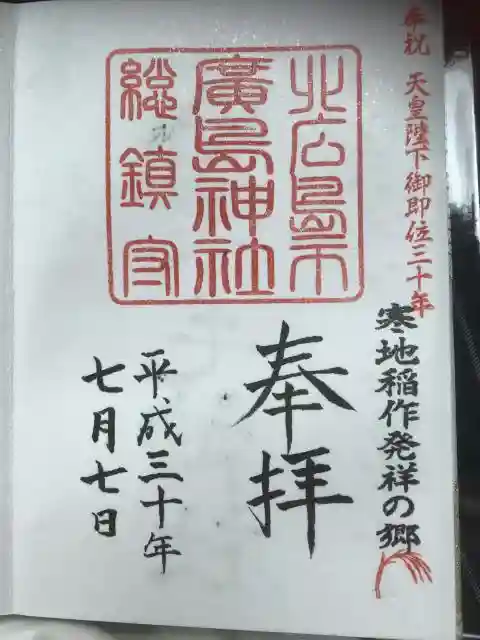 奉祝 天皇陛下御即位三十年
寒地稲作発祥の郷
北広島市
廣島神社
総鎮守
奉拝
平成三十年
七月七日